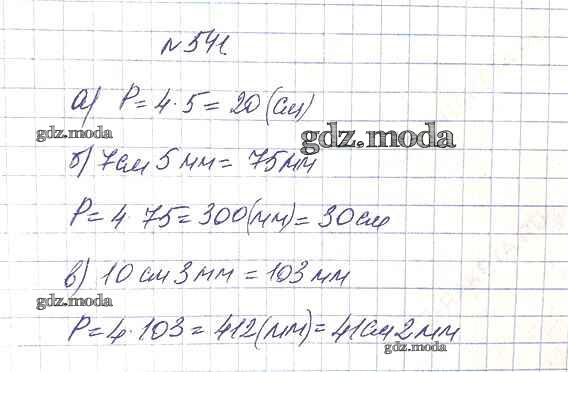 №541
а) P = 4 · 5 = 20 (см)
gdz.moda
gdz.moda
б) 7см 5 мм = 75мм
P = 4 · 75 = 300 (мм) = 30 см
в) 10 см 3 мм = 103 мм
gdz.moda
P = 4 · 103 = 412 (мм) = 41 см 2 мм
gdz.moda